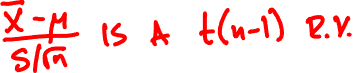 (X̄ - μ) / (S/√n) IS A t(n-1) R.V.